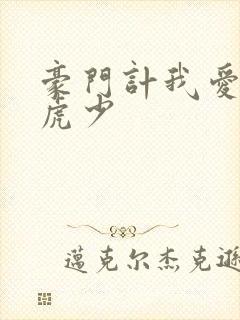 豪門計我愛
虎少
邁克尔杰克遜